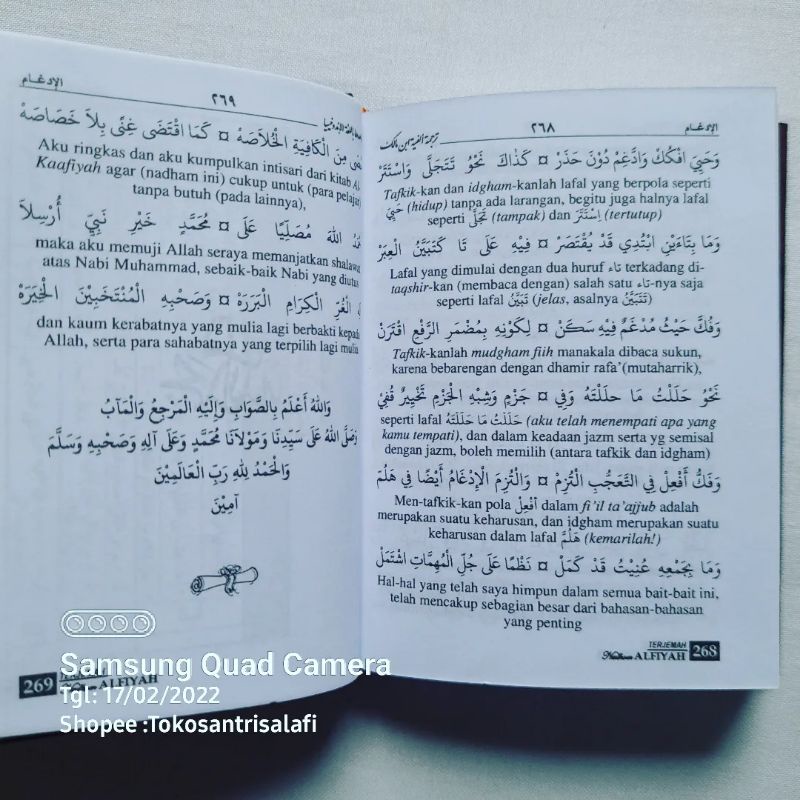 الإدغام
٢٦٨
ترجمة ألفية ابن مالك
وَحَيِيَ افْكُكْ وَادَّغِمْ دُوْنَ حَذَرْ ¤ كَذَاكَ نَحْوُ تَتَجَلَّى وَاسْتَتَرْ
Tafkik-kan dan idgham-kanlah lafal yang berpola seperti
حَيِيَ (hidup) tanpa ada larangan, begitu juga halnya lafal
seperti تَجَلَّى (tampak) dan اِسْتَتَرَ (tertutup)
وَمَا بِتَاءَيْنِ ابْتُدِي قَدْ يُقْتَصَرْ ¤ فِيْهِ عَلَى تَا كَتَبَيَّنُ الْعِبَرْ
Lafal yang dimulai dengan dua huruf تاء terkadang di-
taqshir-kan (membaca dengan) salah satu تاء-nya saja
seperti lafal تَبَيَّنُ (jelas, asalnya تَتَبَيَّنُ)
وَفُكَّ حَيْثُ مُدْغَمٌ فِيْهِ سَكَنْ ¤ لِكَوْنِهِ بِمُضْمَرِ الرَّفْعِ اقْتَرَنْ
Tafkik-kanlah mudgham fiih manakala dibaca sukun,
karena bebarengan dengan dhamir rafa'(mutaharrik),
نَحْوُ حَلَلْتُ مَا حَلَلْتَهُ وَفِي ¤ جَزْمٍ وَشِبْهِ الْجَزْمِ تَخْيِيْرٌ قُفِي
seperti lafal حَلَلْتُ مَا حَلَلْتَهُ (aku telah menempati apa yang
kamu tempati), dan dalam keadaan jazm serta yg semisal
dengan jazm, boleh memilih (antara tafkik dan idgham)
وَفَكُّ أَفْعِلْ فِي التَّعَجُّبِ الْتُزِمْ ¤ وَالْتُزِمَ الْإِدْغَامُ أَيْضًا فِي هَلُمْ
Men-tafkik-kan pola أَفْعِلْ dalam fi'il ta'ajjub adalah
merupakan suatu keharusan, dan idgham merupakan suatu
keharusan dalam lafal هَلُمَّ (kemarilah!)
وَمَا بِجَمْعِهِ عُنِيْتُ قَدْ كَمَلْ ¤ نَظْمًا عَلَى جُلِّ الْمُهِمَّاتِ اشْتَمَلْ
Hal-hal yang telah saya himpun dalam semua bait-bait ini,
telah mencakup sebagian besar dari bahasan-bahasan
yang penting
TERJEMAH
Nadhom ALFIYAH 268
الإدغام
٢٦٩
مِنَ الْكَافِيَةِ الْخُلَاصَهْ ¤ كَمَا اقْتَضَى غِنًى بِلَا خَصَاصَهْ
Aku ringkas dan aku kumpulkan intisari dari kitab Al-
Kaafiyah agar (nadham ini) cukup untuk (para pelajar)
tanpa butuh (pada lainnya),
اللهَ مُصَلِّيًا عَلَى ¤ مُحَمَّدٍ خَيْرِ نَبِيٍّ أُرْسِلَا
maka aku memuji Allah seraya memanjatkan shalawat
atas Nabi Muhammad, sebaik-baik Nabi yang diutus
الْغُرِّ الْكِرَامِ الْبَرَرَهْ ¤ وَصَحْبِهِ الْمُنْتَخَبِيْنَ الْخِيَرَهْ
dan kaum kerabatnya yang mulia lagi berbakti kepada
Allah, serta para sahabatnya yang terpilih lagi mulia
وَاللهُ أَعْلَمُ بِالصَّوَابِ وَإِلَيْهِ الْمَرْجِعُ وَالْمَآبُ
وَصَلَّى اللهُ عَلَى سَيِّدِنَا وَمَوْلَانَا مُحَمَّدٍ وَعَلَى آلِهِ وَصَحْبِهِ وَسَلَّمَ
وَالْحَمْدُ لِلهِ رَبِّ الْعَالَمِيْنَ
آمِيْنَ
269 ALFIYAH
Samsung Quad Camera
Tgl: 17/02/2022
Shopee :Tokosantrisalafi